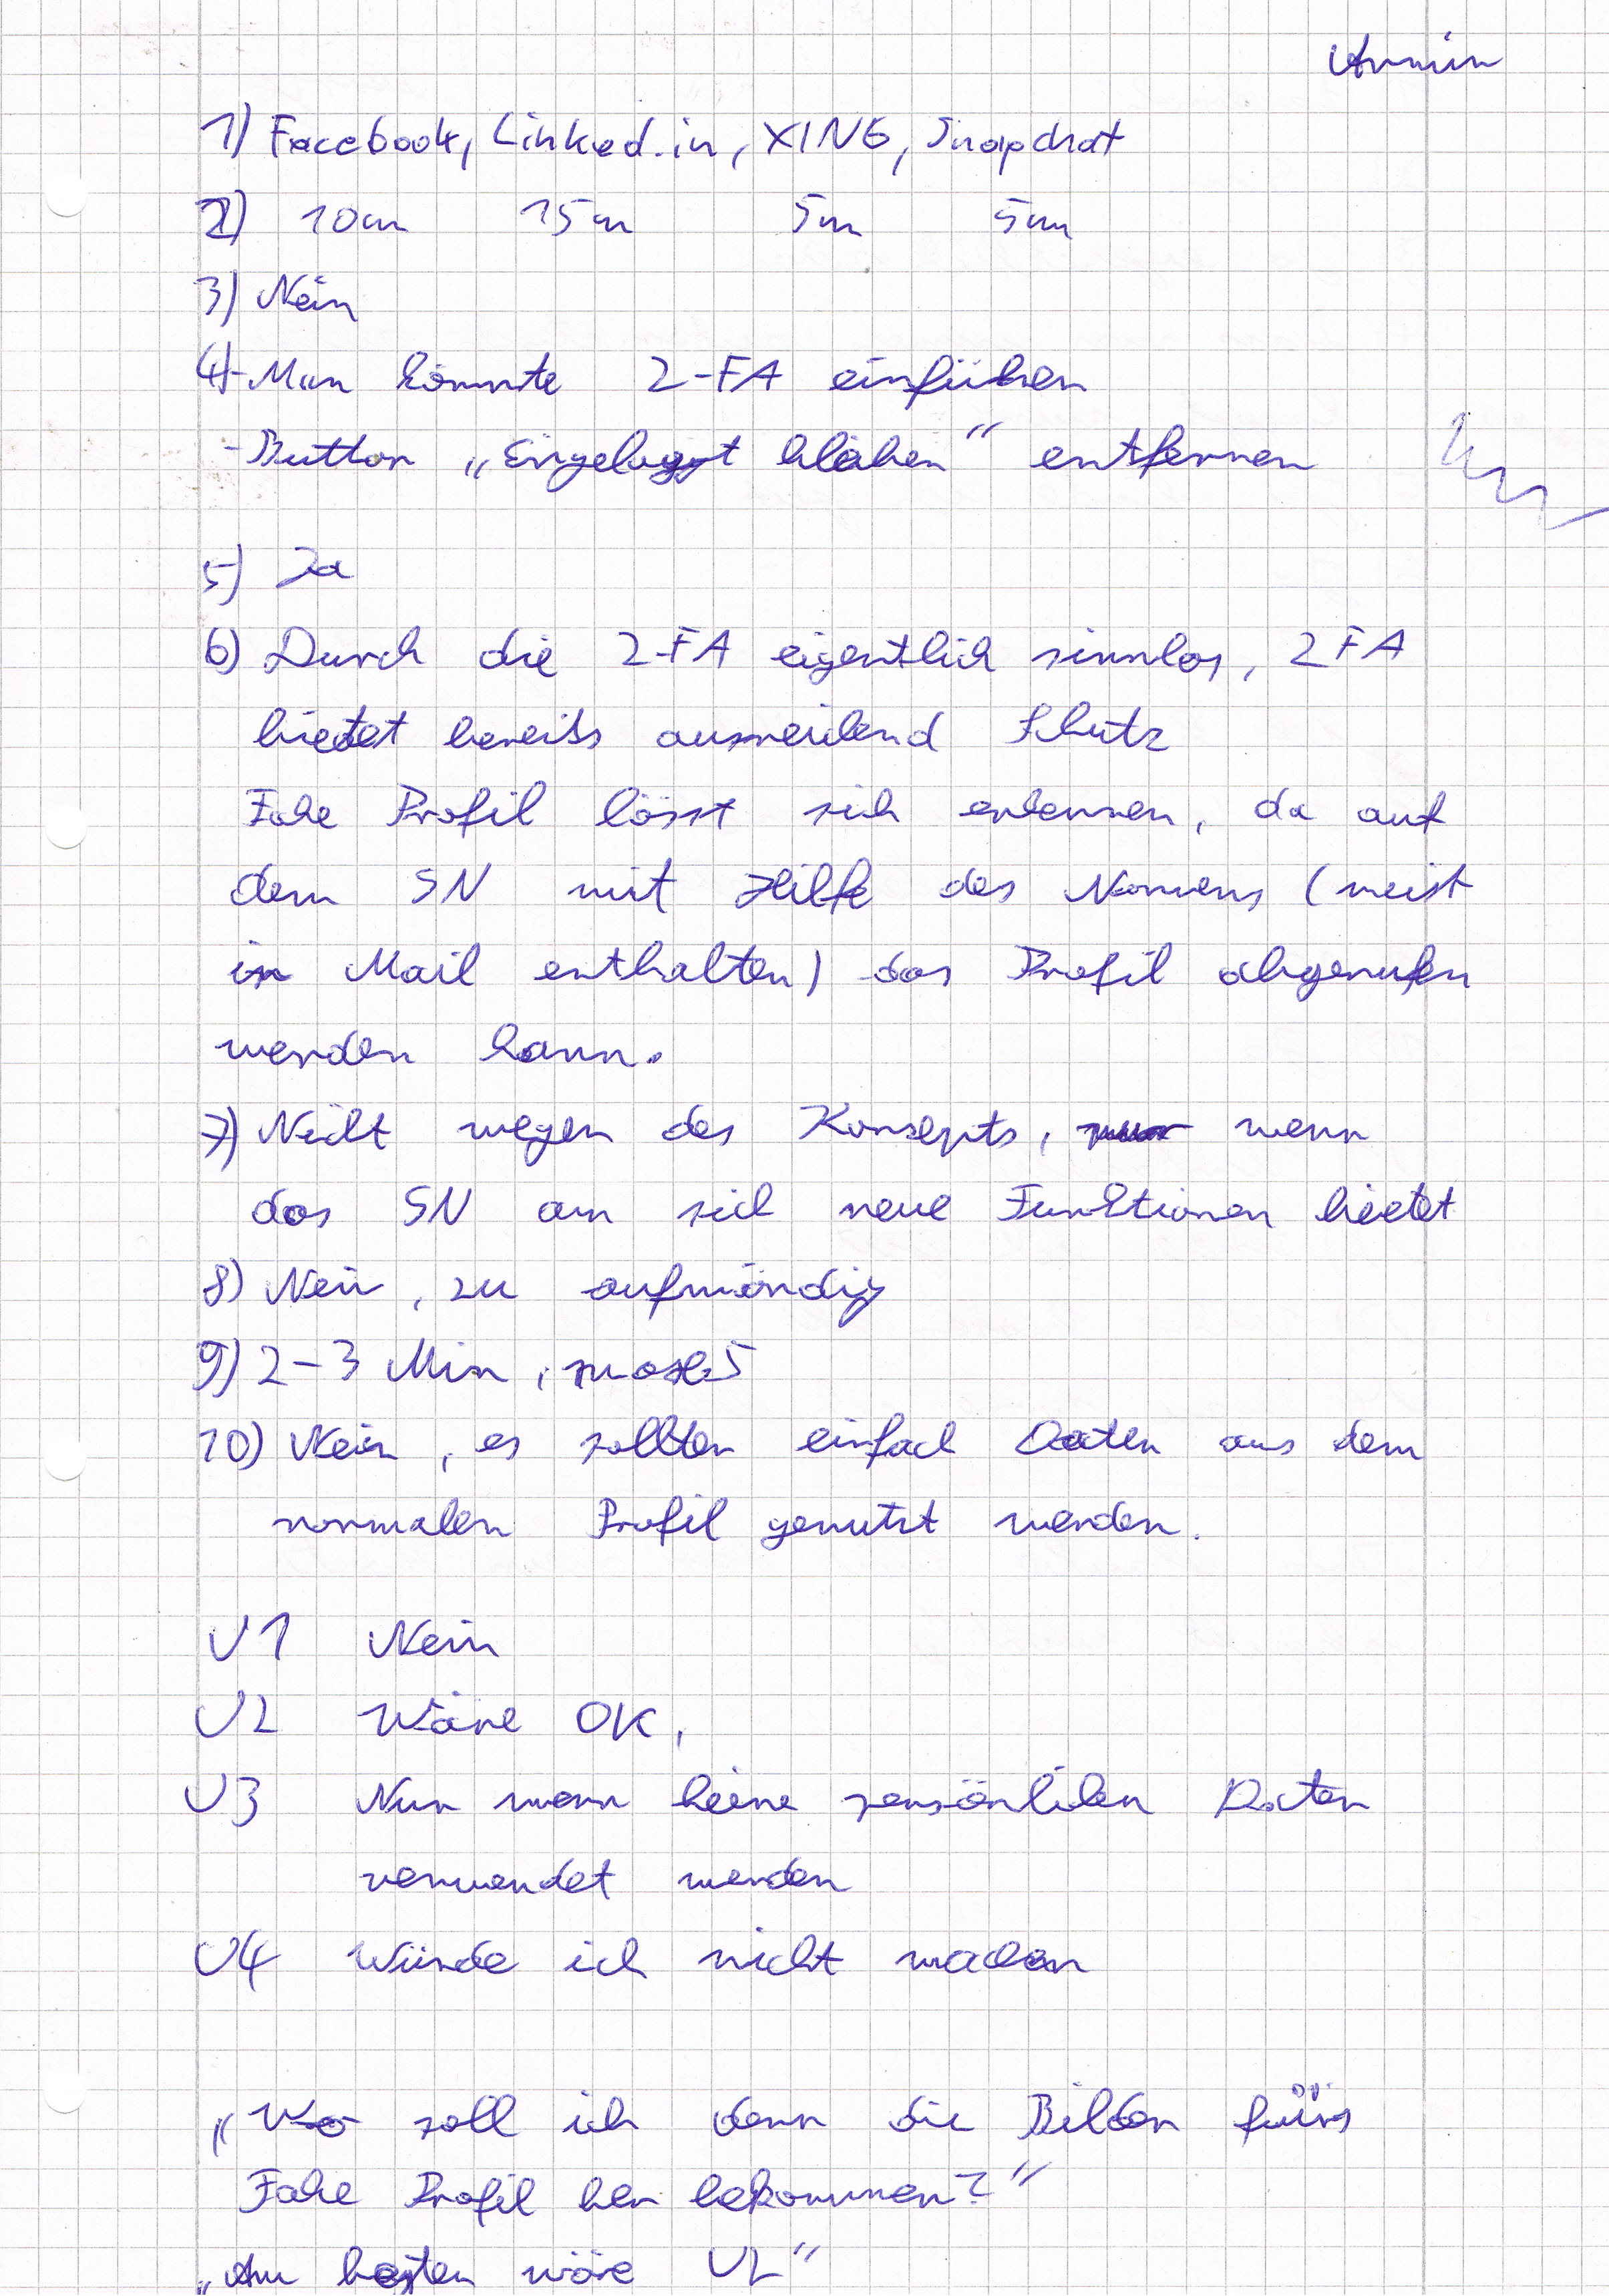 Armin
1) Facebook, Linked.in, XING, Snapchat
2) 10m 15m 5m 5m
3) Nein
4) - Man könnte 2-FA einführen
- Button „Eingeloggt bleiben“ entfernen
5) Ja
6) Durch die 2-FA eigentlich sinnlos, 2FA
bietet bereits ausreichend Schutz
Fake Profil lässt sich erkennen, da auf
dem SN mit Hilfe des Namens (meist
in Mail enthalten) das Profil abgerufen
werden kann.
7) Nicht wegen des Konzepts, wenn
das SN an sich neue Funktionen bietet
8) Nein, zu aufwändig
9) 2-3 Min, max 5
10) Nein, es sollten einfach Daten aus dem
normalen Profil genutzt werden.
V1 Nein
V2 Wäre OK,
V3 Nur wenn keine persönlichen Daten
verwendet werden
V4 Würde ich nicht machen
„Wo soll ich denn die Bilder fürs
Fake Profil her bekommen?“
„Am besten wäre V2“